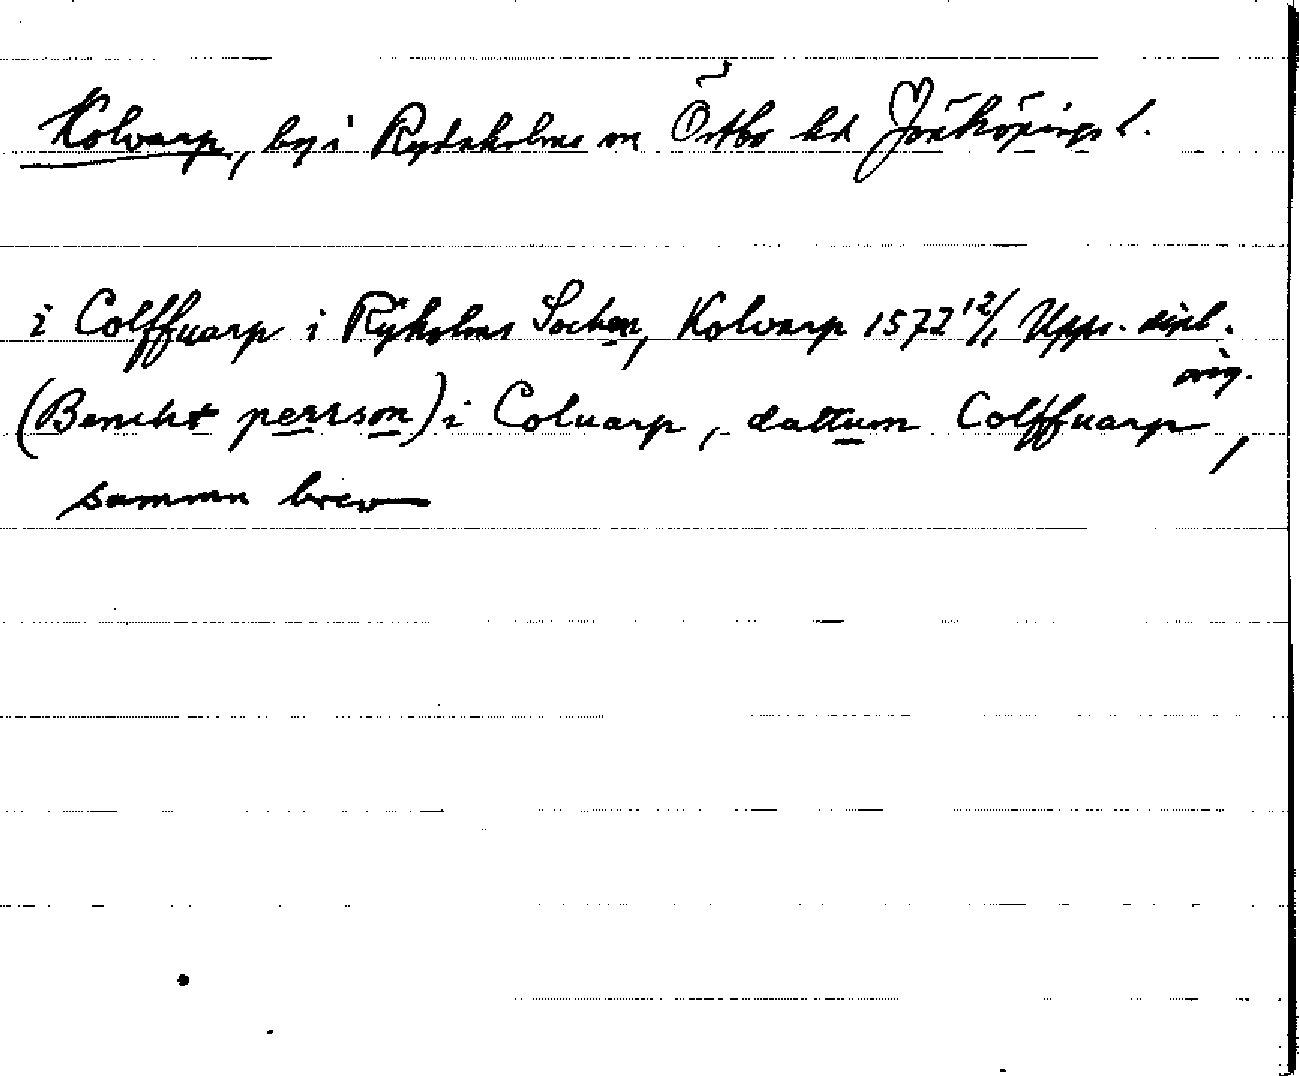 Kolvarp, by i Rydaholms sn Östbo hd Jönköpings l.
i Colffuarp i Rÿholms Sochen, Kolvarp 1572 12/1 Upps. dipl.
orig.
(Bencht persson) i Coluarp, dattum Colffuarp,
samma brev